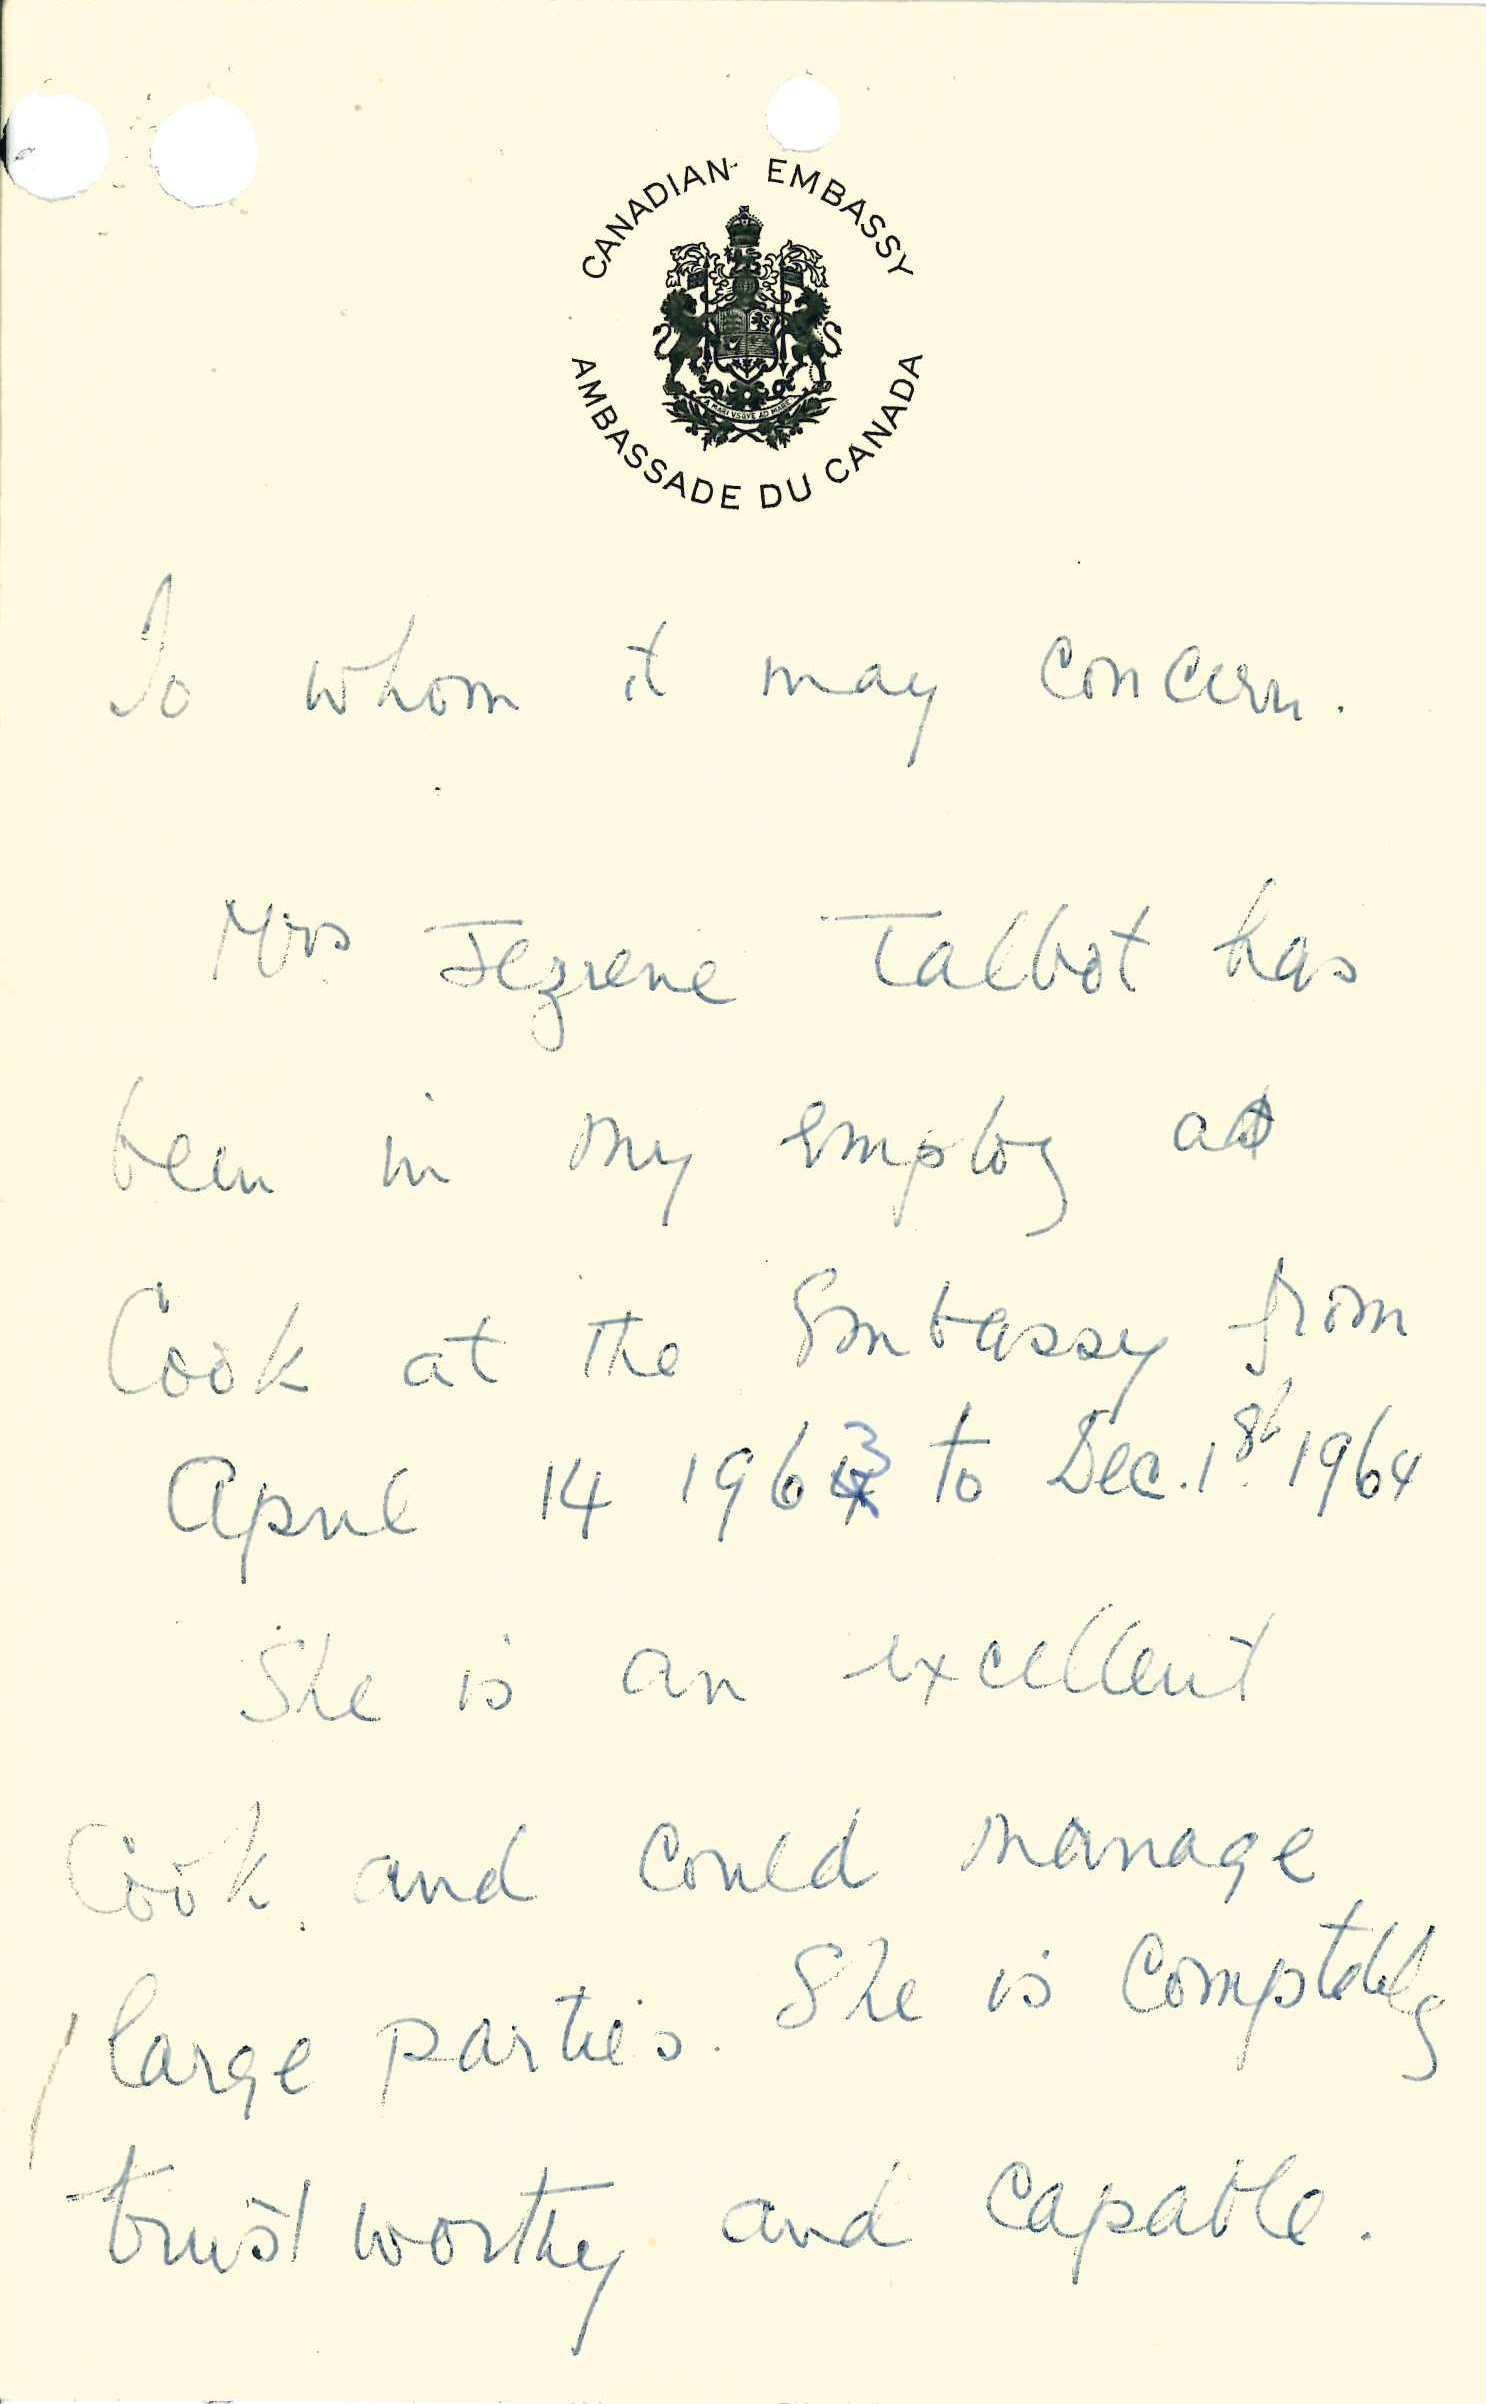 CANADIAN EMBASSY
A MARI VSQVE AD MARE
AMBASSADE DU CANADA
To whom it may concern.
Mrs Jezrene Talbot has
been in my employ as
Cook at the Embassy from
April 14 1963 to Dec. 1st 1964
She is an excellent
Cook, and could manage
large parties. She is completely
trustworthy and capable.